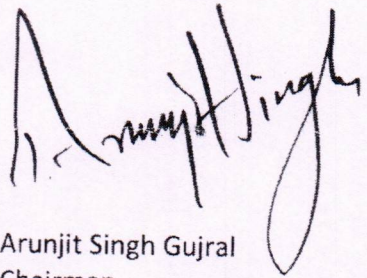 Arunjit Singh
Arunjit Singh Gujral
Chairman